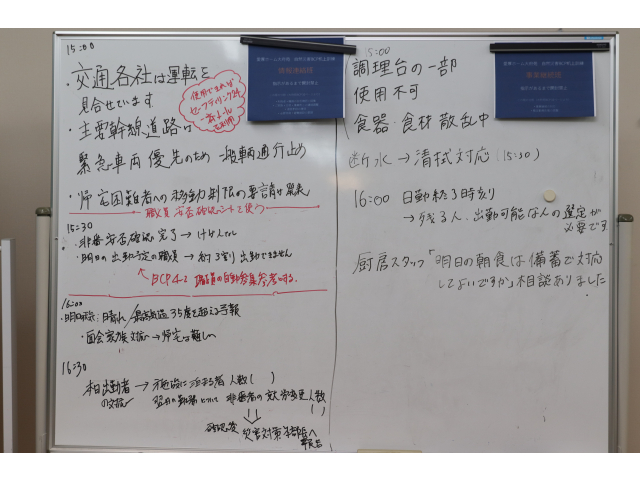 15:00
・交通各社は運転を
見合せています
・主要幹線道路は
緊急車両優先のため 一般車両通行止め
・帰宅困難者への移動制限の要請は発表
使用できれば
職員安否確認シートを使う
15:30
・非番安否確認の完了→けが人なし
・明日の出勤予定の職員→約3割り出勤できません
BCP4-2 職員の自動参集参考にする。
16:00
35度を超える予報
・面会家族対応→帰宅は難しい
16:30
→施設に泊まる者 人数( )
翌日の勤務について
( )
確認後 災害対策本部長へ
報告
15:00
調理台の一部
使用不可
食器・食材 散乱中
断水→清拭対応(15:30)
16:00 日勤終了時刻
→残る人、出勤可能な人の選定が
必要です
厨房スタッフ「明日の朝食は備蓄で対応
してよいですか」相談ありました